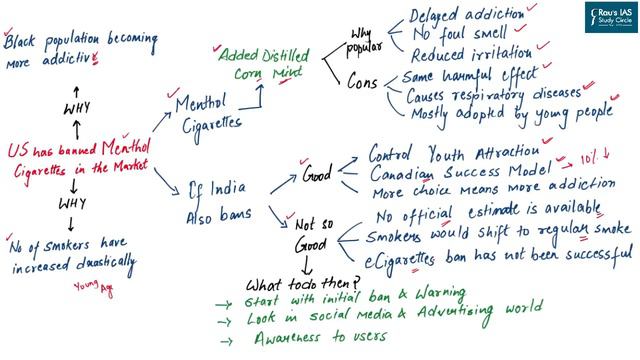 Rau's IAS
Study Circle
Black population becoming
more addictive
WHY
US has banned Menthol
Cigarettes in the Market
WHY
No of smokers have
increased drastically
Young Age
Menthol
Cigarettes
Added Distilled
Corn Mint
Why
popular
Delayed addiction
No foul smell
Reduced irritation
Cons
Same harmful effect
Causes respiratory diseases
Mostly adopted by young people
If India
Also bans
Good
Control Youth Attraction
Canadian Success Model → 10% ↓
More choice means more addiction
Not so
Good
No official estimate is available
Smokers would shift to regular smoke
eCigarettes ban has not been successful
What to do then?
→ Start with initial ban & Warning
→ Look in Social Media & Advertising world
→ Awareness to users